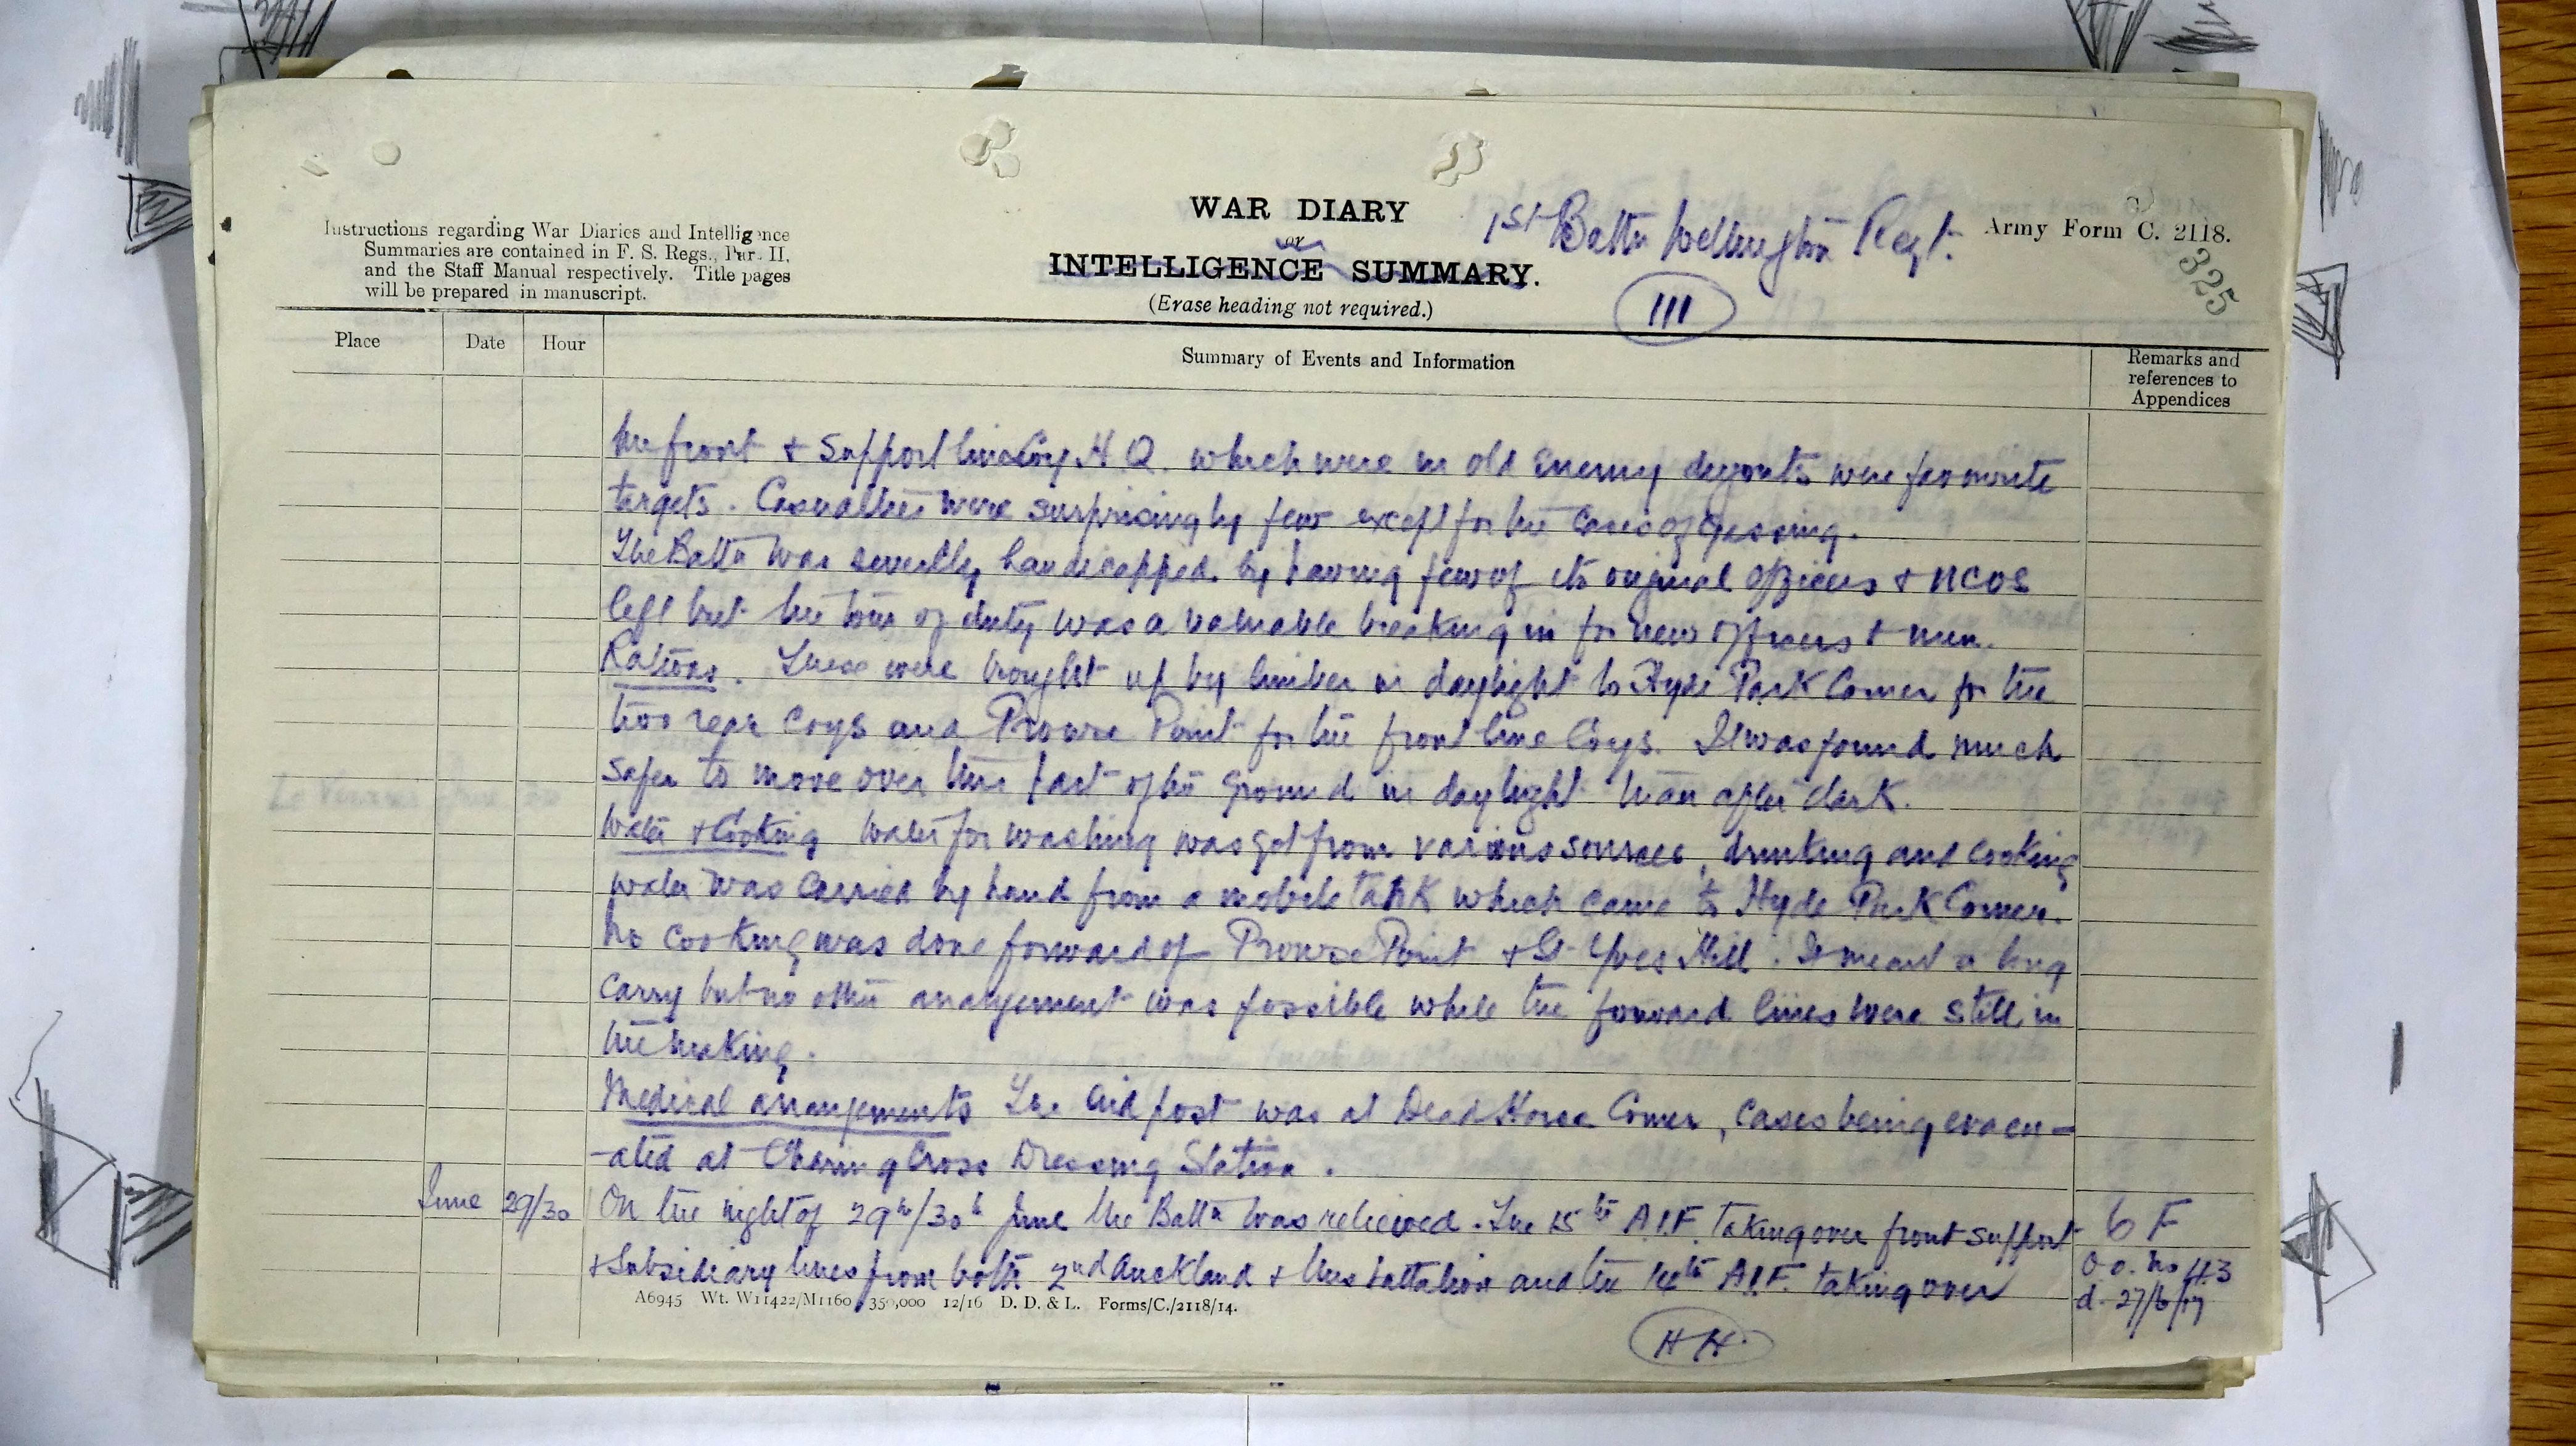 WAR DIARY
or
INTELLIGENCE SUMMARY.
(Erase heading not required.)
1st Battn Wellington Regt.
III
Army Form C. 2118.
325
Instructions regarding War Diaries and Intelligence
Summaries are contained in F. S. Regs., Part II,
and the Staff Manual respectively. Title pages
will be prepared in manuscript.
Place
Date
Hour
Summary of Events and Information
Remarks and
references to
Appendices
the front & support lines Coy H Q. which were in old enemy dugouts were favourite
targets. Casualties were surprisingly few except for the cases of gassing.
The Battn was severely handicapped by having few of its original officers & NCOS
left but the tour of duty was a valuable breaking in for new officers & men.
Rations. These were brought up by limber in daylight to Hyde Park Corner for the
two rear Coys and Prowse Point for the front line Coys. It was found much
safer to move over this part of the ground in daylight than after dark.
Water & Cooking Water for washing was got from various sources, drinking and cooking
water was carried by hand from a mobile tank which came to Hyde Park Corner.
No cooking was done forward of Prowse Point & St Yves Hill. It meant a long
carry but no other arrangement was possible while the forward lines were still in
the making.
Medical arrangements The Aid post was at Dead Horse Corner, cases being evacu-
-ated at Charing Cross Dressing Station.
June 29/30 On the night of 29th/30th June the Battn was relieved. The 15th A.I.F. taking over front support
& Subsidiary lines from both 2nd Auckland & this battalion and the A.I.F. taking over
6 F
O.O. No 43
d. 27/6/17
A6945 Wt. W11422/M1160 350,000 12/16 D. D. & L. Forms/C./2118/14.
HH.